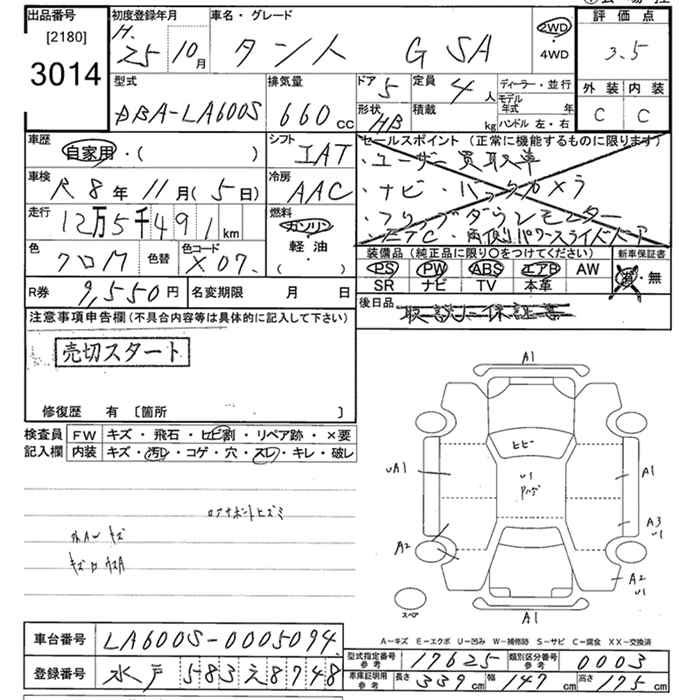 出品番号
[2180]
3014
初度登録年月
H.
25年 10月
車名・グレード
タント G SA
2WD
・
4WD
評価点
3.5
外装 内装
C C
型式
DBA-LA600S
排気量
660 cc
ドア 5
形状 HB
定員 4人
積載 kg
ディーラー・並行
モデル年式 年
ハンドル 左・右
車歴
自家用・( )
シフト
IAT
車検
R 8年 11月(5日)
冷房
AAC
走行
12万5千491km
燃料
ガソリン
・
軽油
・
( )
色
クロM 色替
色コード
X07.
セールスポイント (正常に機能するものに限ります)
・ユーザー買取車
・ナビ・バックカメラ
・フリップダウンモニター
・ETC・両側パワースライドドア
装備品 (純正品に限り○をつけてください)
PS PW ABS エアB AW
SR ナビ TV 本革
新車保証書
有・無
後日品
取説・保証書
R券 9,550円 名変期限 月 日
注意事項申告欄(不具合内容等は具体的に記入して下さい)
売切スタート
修復歴 有 〔箇所 〕
検査員 FW キズ・飛石・ヒビ割・リペア跡・×要
記入欄 内装 キズ・汚レ・コゲ・穴・スレ・キレ・破レ
コアサポートヒズミ
外A〜 キズ
A1
ヒビ
UA1
U1
A1
A3
U1
A2
A2
U1
スペア
A1
A−キズ E−エクボ U−凹み W−補修跡 S−サビ C−腐食 XX−交換済
車台番号 LA600S-0005094
登録番号 水戸 583 え 8748
型式指定番号 参考 17625 類別区分番号 参考 0003
車庫証明用 参考 長さ 339cm 幅 147cm 高さ 175cm